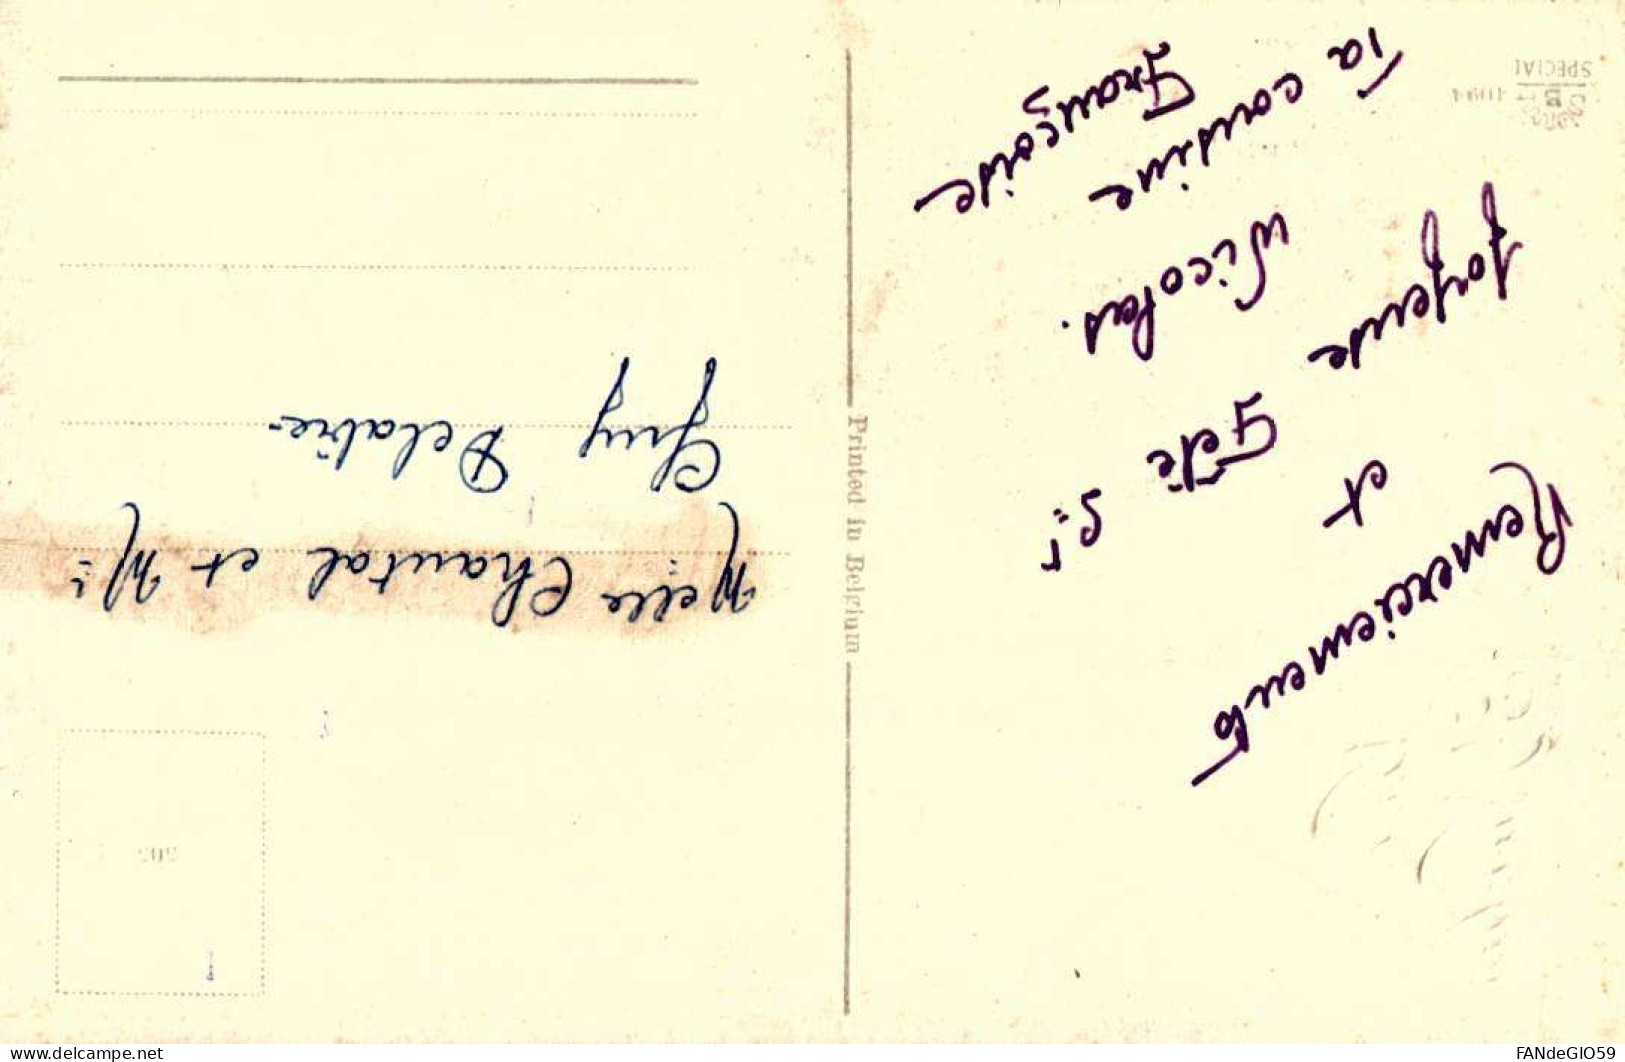 Remerciements
et
Joyeuse Fête St
Nicolas.
Ta cousine
Françoise
Printed in Belgium
Melle Chantal et Mr
Guy
SPECIAL
www.delcampe.net
FANdeGIO59